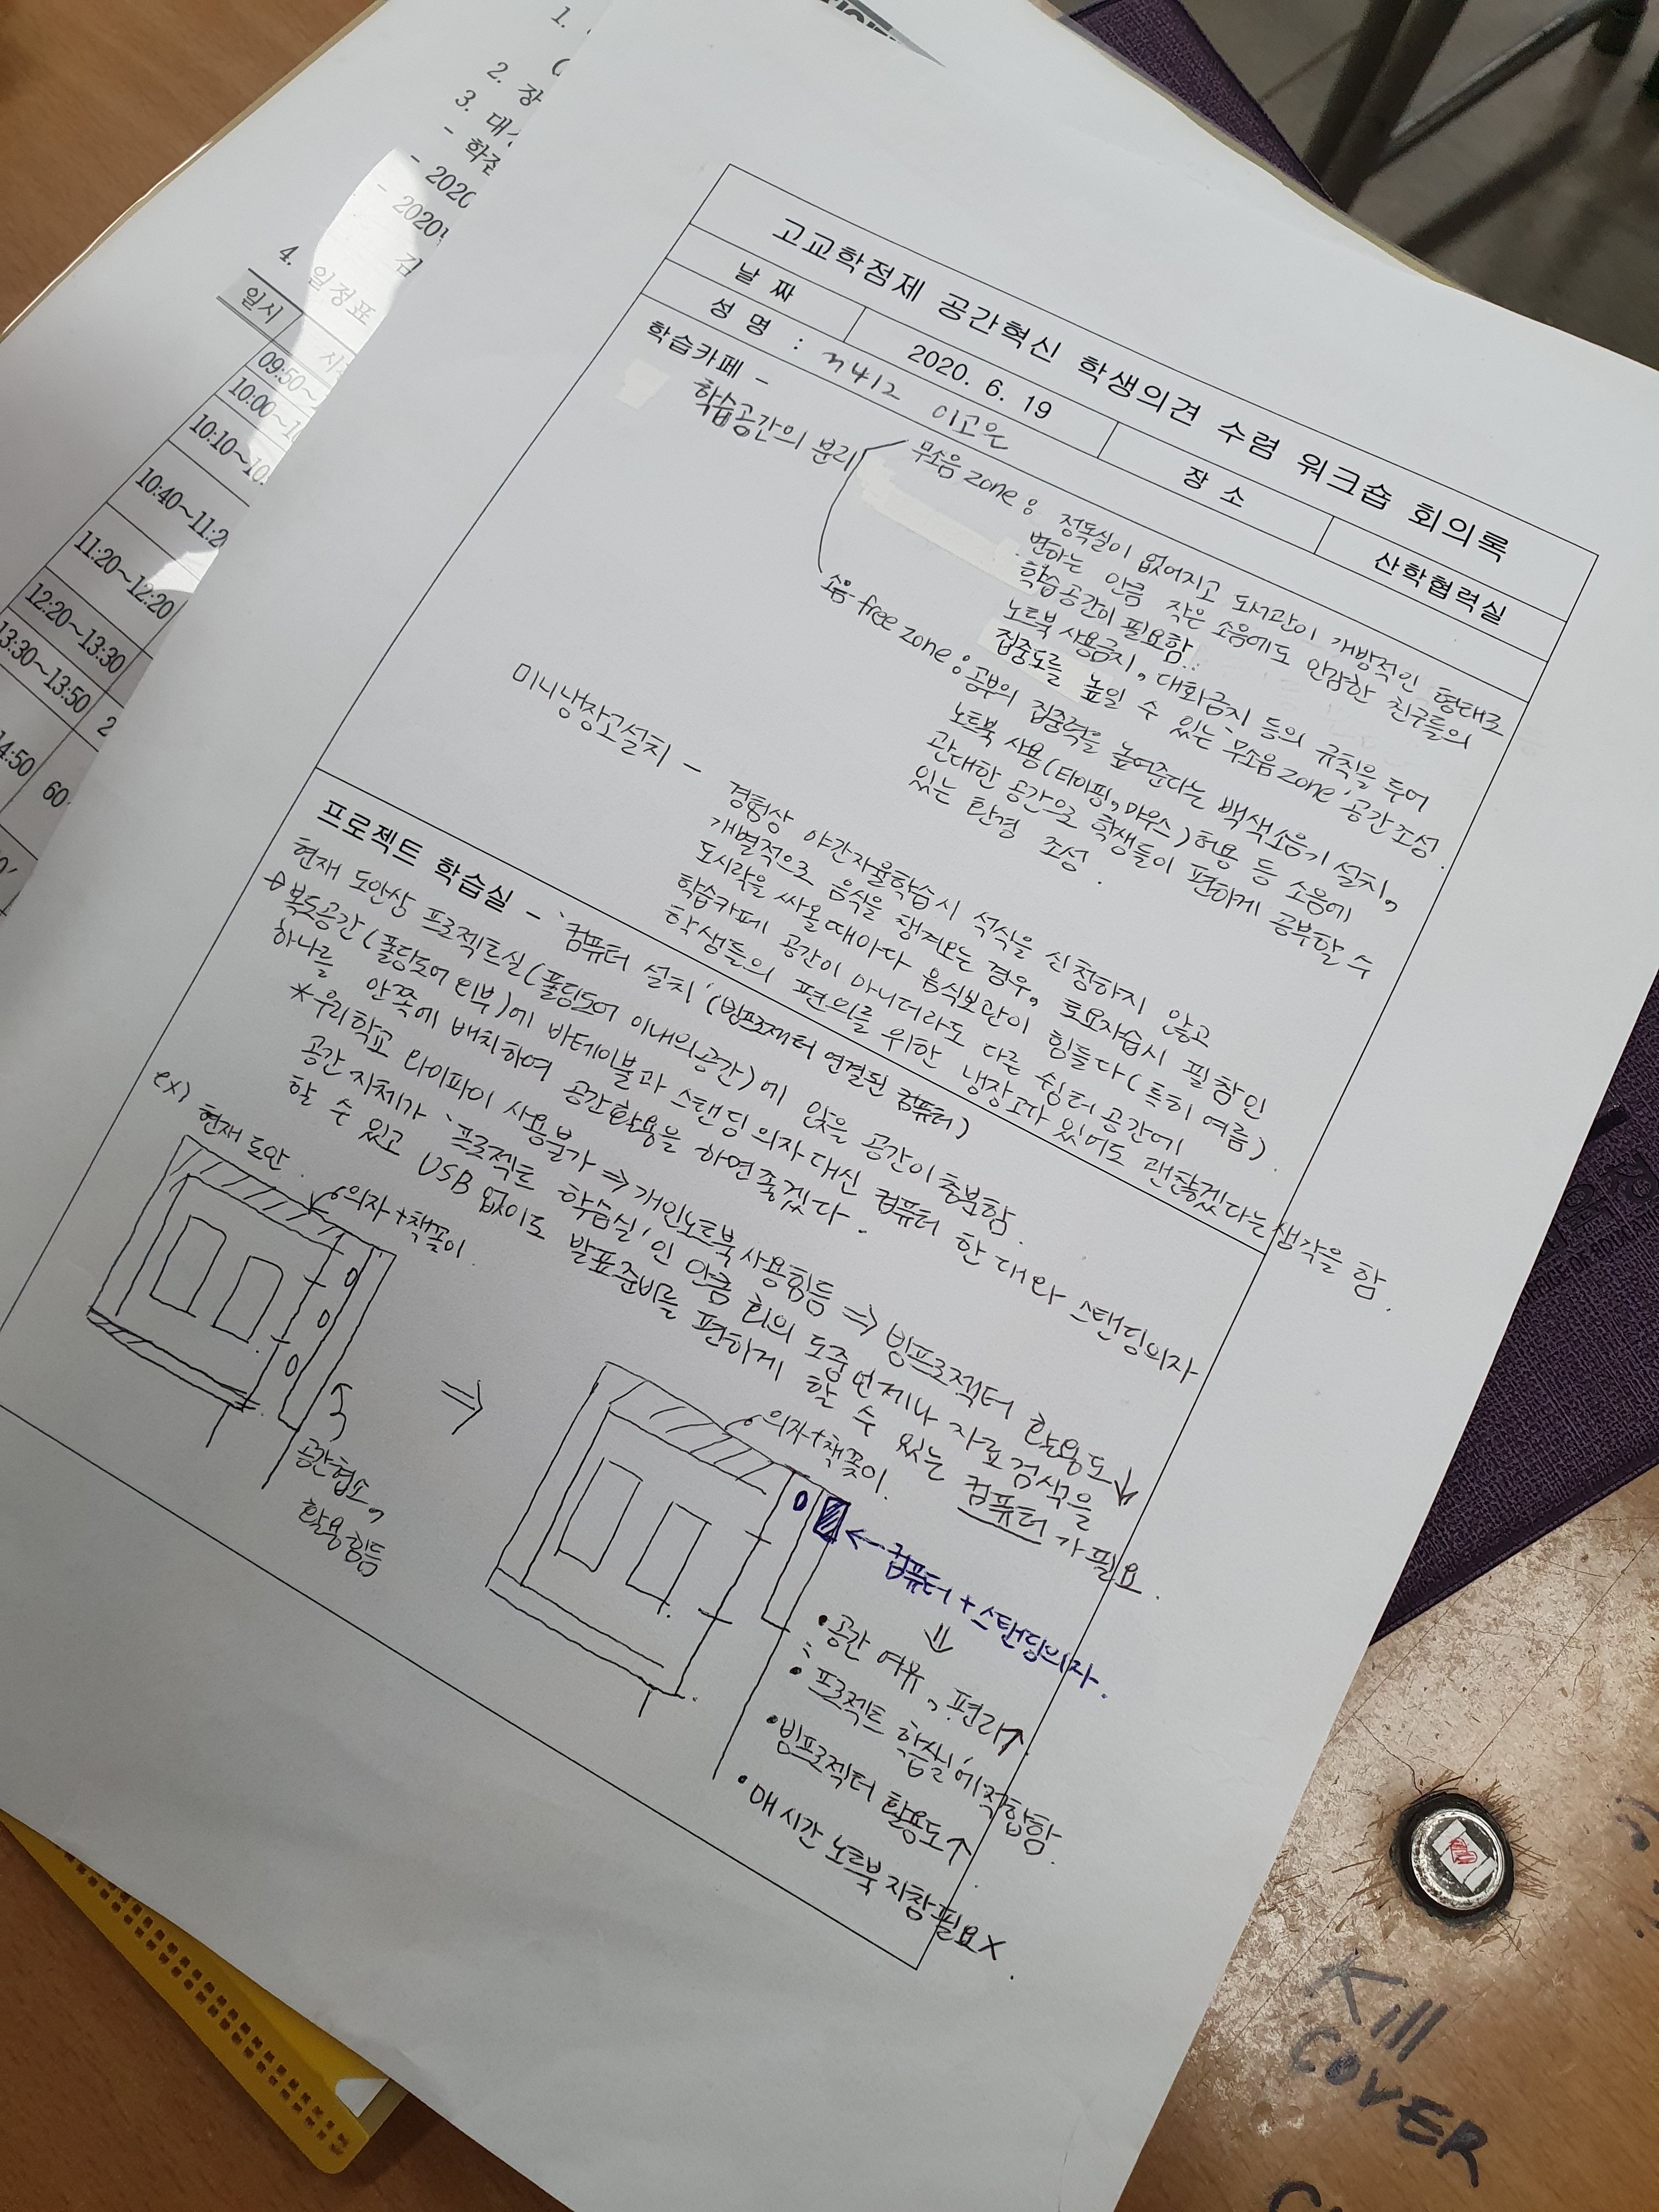 1.
2. 장
3. 대
- 학
- 2020
- 2020
김
4. 일정표
일시
09:50~
10:00~1
10:10~10
10:40~11:2
11:20~12:20
12:20~13:30
13:30~13:50 2
4:50 60
고교학점제 공간혁신 학생의견 수렴 워크숍 회의록
날 짜 2020. 6. 19 장 소 산학협력실
성 명 : 3412 이고은
학습카페 -
학습공간의 분리
무소음 zone : 정독실이 없어지고 도서관이 개방적인 형태로
변하는 만큼 작은 소음에도 민감한 친구들의
학습공간이 필요함.
노트북 사용금지, 대화금지 등의 규칙을 두어
집중도를 높일 수 있는 '무소음 zone' 공간 조성.
소음 free zone : 공부의 집중력을 높여준다는 백색소음기 설치,
노트북 사용(타이핑, 마우스) 허용 등 소음에
관대한 공간으로 학생들이 편하게 공부할 수
있는 환경 조성.
미니냉장고설치 - 경험상 야간자율학습시 석식을 신청하지 않고
개별적으로 음식을 챙겨오는 경우, 토요자습시 필참인
도시락을 싸올때마다 음식보관이 힘들다(특히 여름).
학습카페 공간이 아니더라도 다른 쉼터 공간에
학생들의 편의를 위한 냉장고가 있어도 괜찮겠다는 생각을 함.
프로젝트 학습실 - '컴퓨터 설치' (빔프로젝터 연결된 컴퓨터)
현재 도안상 프로젝트실(폴딩도어 이내의 공간)에 앉을 공간이 충분함.
→ 복도공간(폴딩도어 외부)에 바테이블과 스탠딩 의자 대신 컴퓨터 한 대와 스탠딩의자
하나를 안쪽에 배치하여 공간활용을 하면 좋겠다.
* 우리학교 와이파이 사용불가 ⇒ 개인노트북 사용힘듬 ⇒ 빔프로젝터 활용도↓
공간 자체가 '프로젝트 학습실'인 만큼 회의 도중 언제나 자료검색을
할 수 있고 USB 없이도 발표준비를 편하게 할 수 있는 컴퓨터가 필요.
ex) 현재 도안
의자+책꽂이
공간협소,
활용힘듬
⇒
의자+책꽂이
← 컴퓨터 + 스탠딩의자.
⇓
• 공간 여유, 편리↑
• '프로젝트 학습실'에 적합함.
• 빔프로젝터 활용도↑
• 매 시간 노트북 지참 필요X.
Kill
COVER